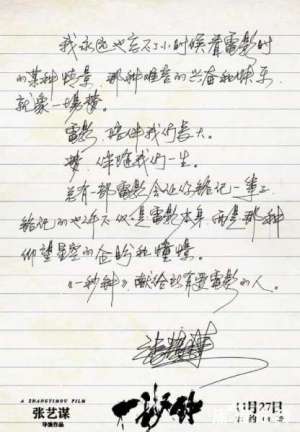 我永远也忘不了小时候看電影时
的某种情景，那种难言的兴奋和快乐
就象一場梦。
電影，陪伴我们長大。
梦，伴随我们一生。
总有一部電影会让你铭记一辈子，
铭记的也许不仅仅是電影本身，而是那种
仰望星空的企盼和憧憬。
《一秒钟》献给所有爱電影的人。
张艺谋
A ZHANGYIMOU FILM
张艺谋
导演作品
一秒钟
11月27日